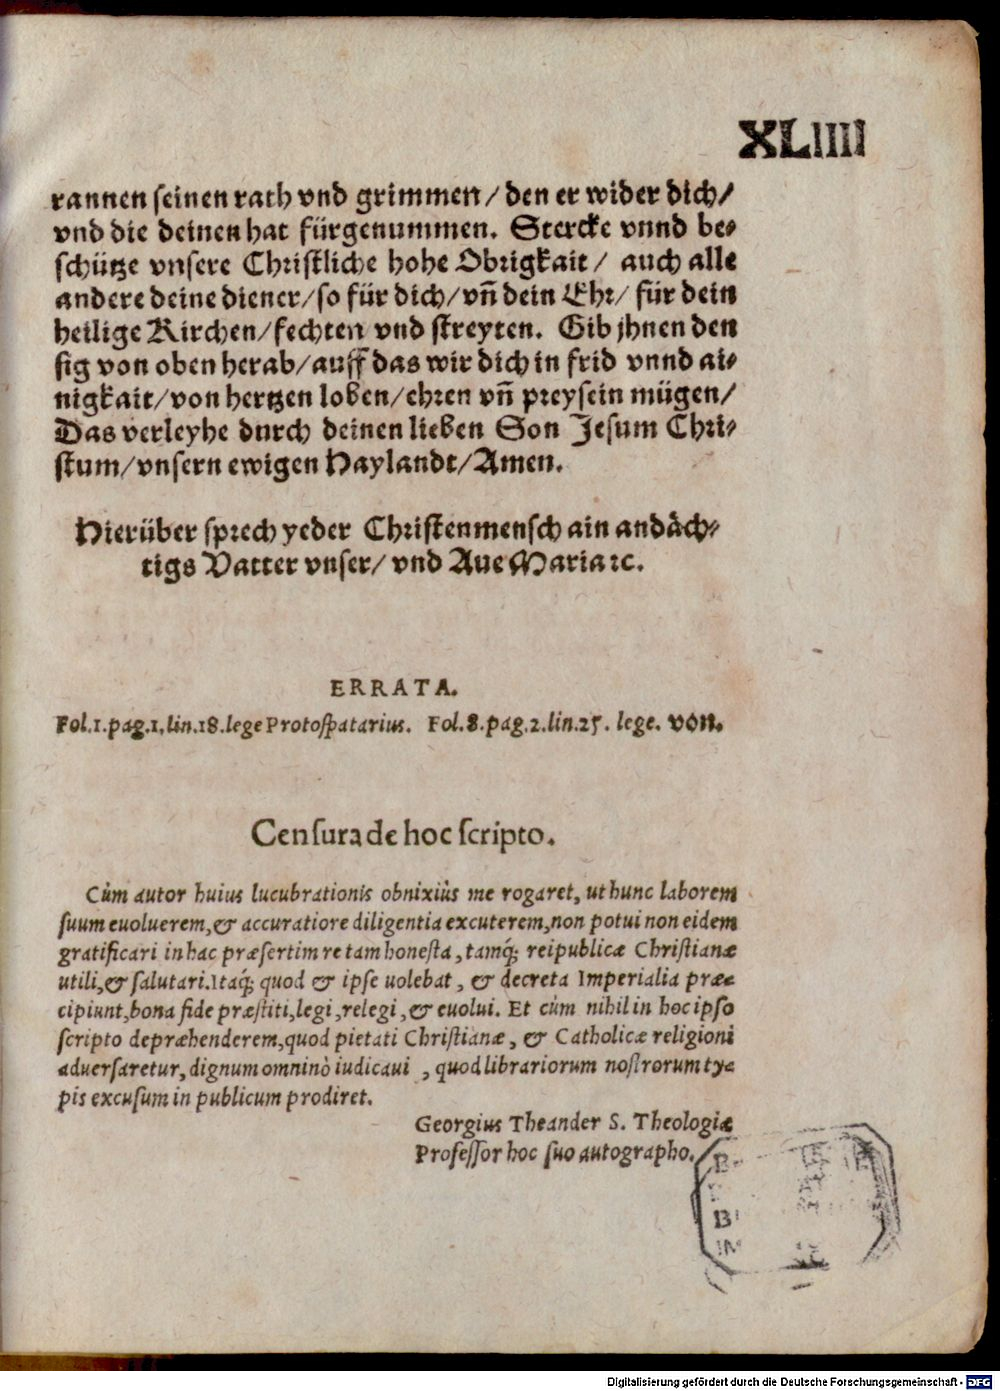 XLIIII
rannen seinen rath vnd grimmen/ den er wider dich/
vnd die deinen hat fürgenummen. Stercke vnnd be⸗
schütze vnsere Christliche hohe Obrigkait/ auch alle
andere deine diener/ so für dich/ vñ dein Ehr/ für dein
heilige Kirchen/ fechten vnd streyten. Gib jhnen den
sig von oben herab/ auff das wir dich in frid vnnd ai⸗
nigkait/ von hertzen loben/ ehren vñ preysein mügen/
Das verleyhe durch deinen lieben Son Jesum Chri⸗
stum/ vnsern ewigen Haylandt/ Amen.
Hierüber sprech yeder Christenmensch ain andåch⸗
tigs Vatter vnser/ vnd Aue Maria ꝛc.
ERRATA.
Fol.1.pag.1.lin.18.lege Protospatarius. Fol.8.pag.2.lin.25. lege. von.
Censura de hoc scripto.
Cùm autor huius lucubrationis obnixiùs me rogaret, ut hunc laborem
suum euoluerem, & accuratiore diligentia excuterem, non potui non eidem
gratificari in hac præsertim re tam honesta, tamq́; reipublicæ Christianæ
utili, & salutari. Itaq́; quod & ipse uolebat, & decreta Imperialia præ⸗
cipiunt, bona fide præstiti, legi, relegi, & euolui. Et cùm nihil in hoc ipso
scripto depræhenderem, quod pietati Christianæ, & Catholicæ religioni
aduersaretur, dignum omninò iudicaui, quod librariorum nostrorum ty⸗
pis excusum in publicum prodiret.
Georgius Theander S. Theologiæ
Professor hoc suo autographo.
Digitalisierung gefördert durch die Deutsche Forschungsgemeinschaft - DFG